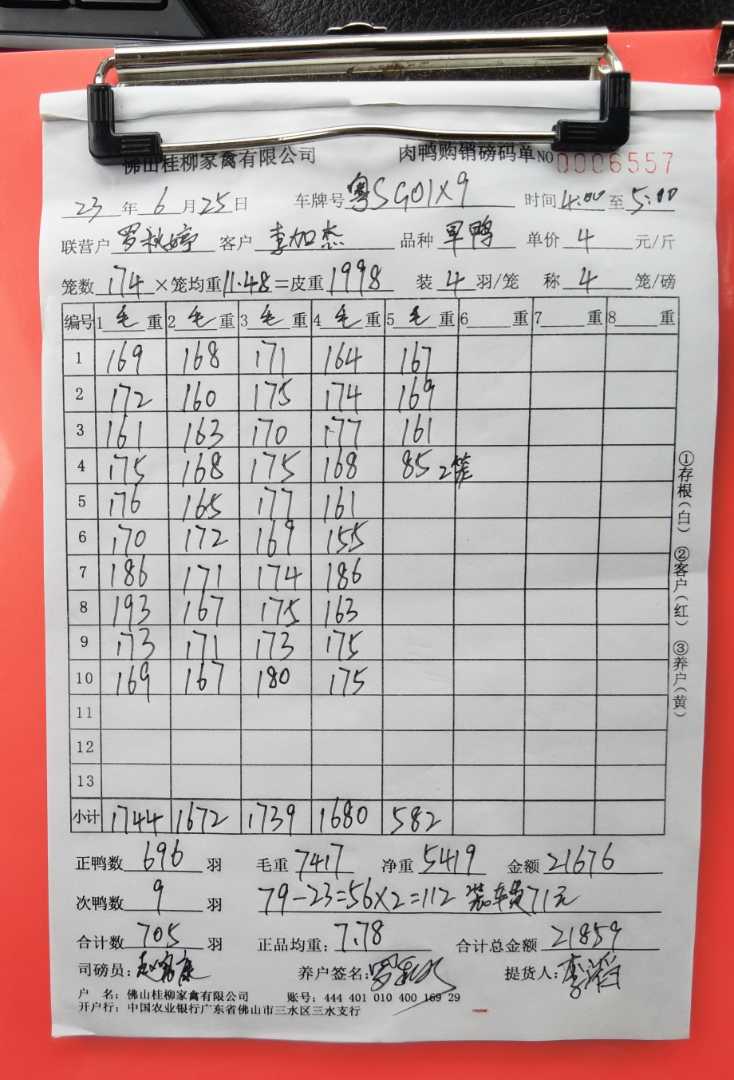 佛山桂柳家禽有限公司 肉鸭购销磅码单 NO 0006557
23年6月25日 车牌号 粤SG01X9 时间4:00至5:00
联营户 罗秋婷 客户 李加杰 品种 早鸭 单价 4 元/斤
笼数 174 ×笼均重11.48=皮重1998 装 4 羽/笼 称 4 笼/磅
编号 1 毛 重 2 毛 重 3 毛 重 4 毛 重 5 毛 重 6 重 7 重 8 重
1 169 168 171 164 167
2 172 160 175 174 169
3 161 163 170 177 161
4 175 168 175 168 85 2笼
5 176 165 177 161
6 170 172 169 155
7 186 171 174 186
8 193 167 175 163
9 173 171 173 175
10 169 167 180 175
11
12
13
小计 1744 1672 1739 1680 582
①存根(白) ②客户(红) ③养户(黄)
正鸭数 696 羽 毛重 7417 净重 5419 金额 21676
次鸭数 9 羽 79-23=56×2=112 装车费71元
合计数 705 羽 正品均重: 7.78 合计总金额 21859
司磅员: 养户签名: 提货人:
户 名: 佛山桂柳家禽有限公司 账号: 444 401 010 400 169 29
开户行: 中国农业银行广东省佛山市三水区三水支行